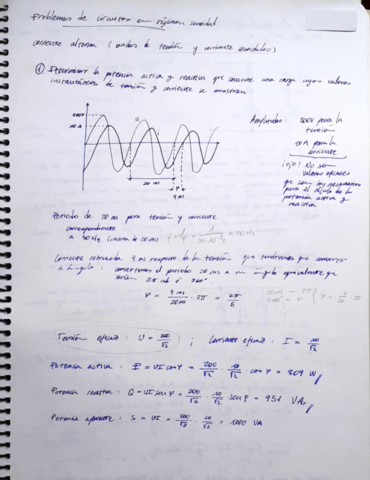 Problemas de circuitos en régimen senoidal
corriente alterna (ondas de tensión y corriente senoidales)
① Determinar la potencia activa y reactiva que consume una carga cuyos valores
instantáneos de tensión y corriente se muestran
200V
10 A
u
i
20 ms
φ
4 ms
Amplitudes: 200V para la
tensión
10A para la
corriente
¡ojo! No son
valores eficaces
que son los
para el cálculo de la
potencia activa y
reactiva
Periodo de 20 ms para tensión y corriente
correspondiente
a 50 Hz
Corriente retrasada 4 ms respecto de la tensión que tendremos que convertir
a ángulo: convertimos el periodo 20 ms a un ángulo equivalente que
serán 2π rad ó 360°
φ = 4 ms / 20 ms · 2π = 2π/5
Tensión eficaz: U = 200/√2 ; Corriente eficaz: I = 10/√2
Potencia activa: P = UI cos φ = 200/√2 · 10/√2 · cos φ = 309 W
Potencia reactiva: Q = UI sen φ = 200/√2 · 10/√2 · sen φ = 951 VAr
Potencia aparente: S = UI = 200/√2 · 10/√2 = 1000 VA